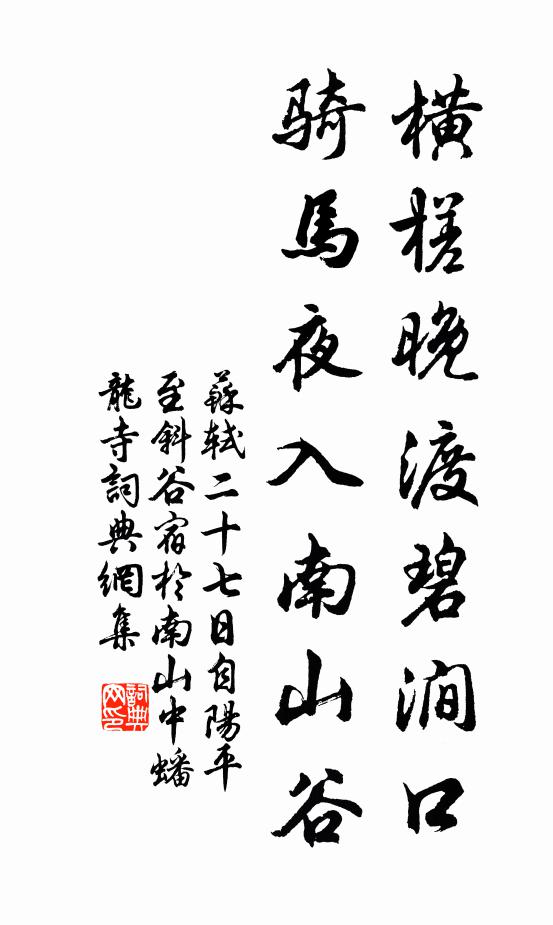 橫槎晚渡碧澗口
騎馬夜入南山谷
蘇軾二十七日自陽平
至斜谷宿於南山中蟠
龍寺詞典網集
詞典網印